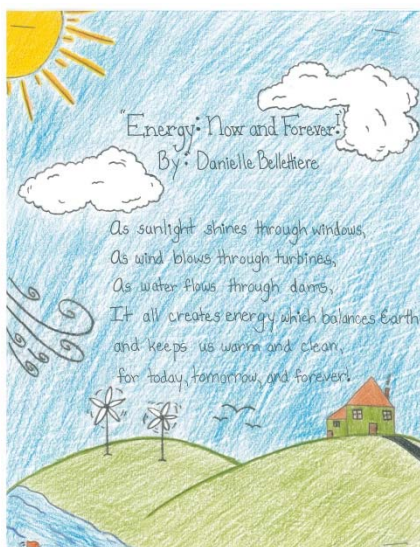 "Energy: Now and Forever!
By: Danielle Bellettiere
As sunlight shines through windows,
As wind blows through turbines,
As water flows through dams,
It all creates energy, which balances Earth
and keeps us warm and clean,
for today, tomorrow, and forever!